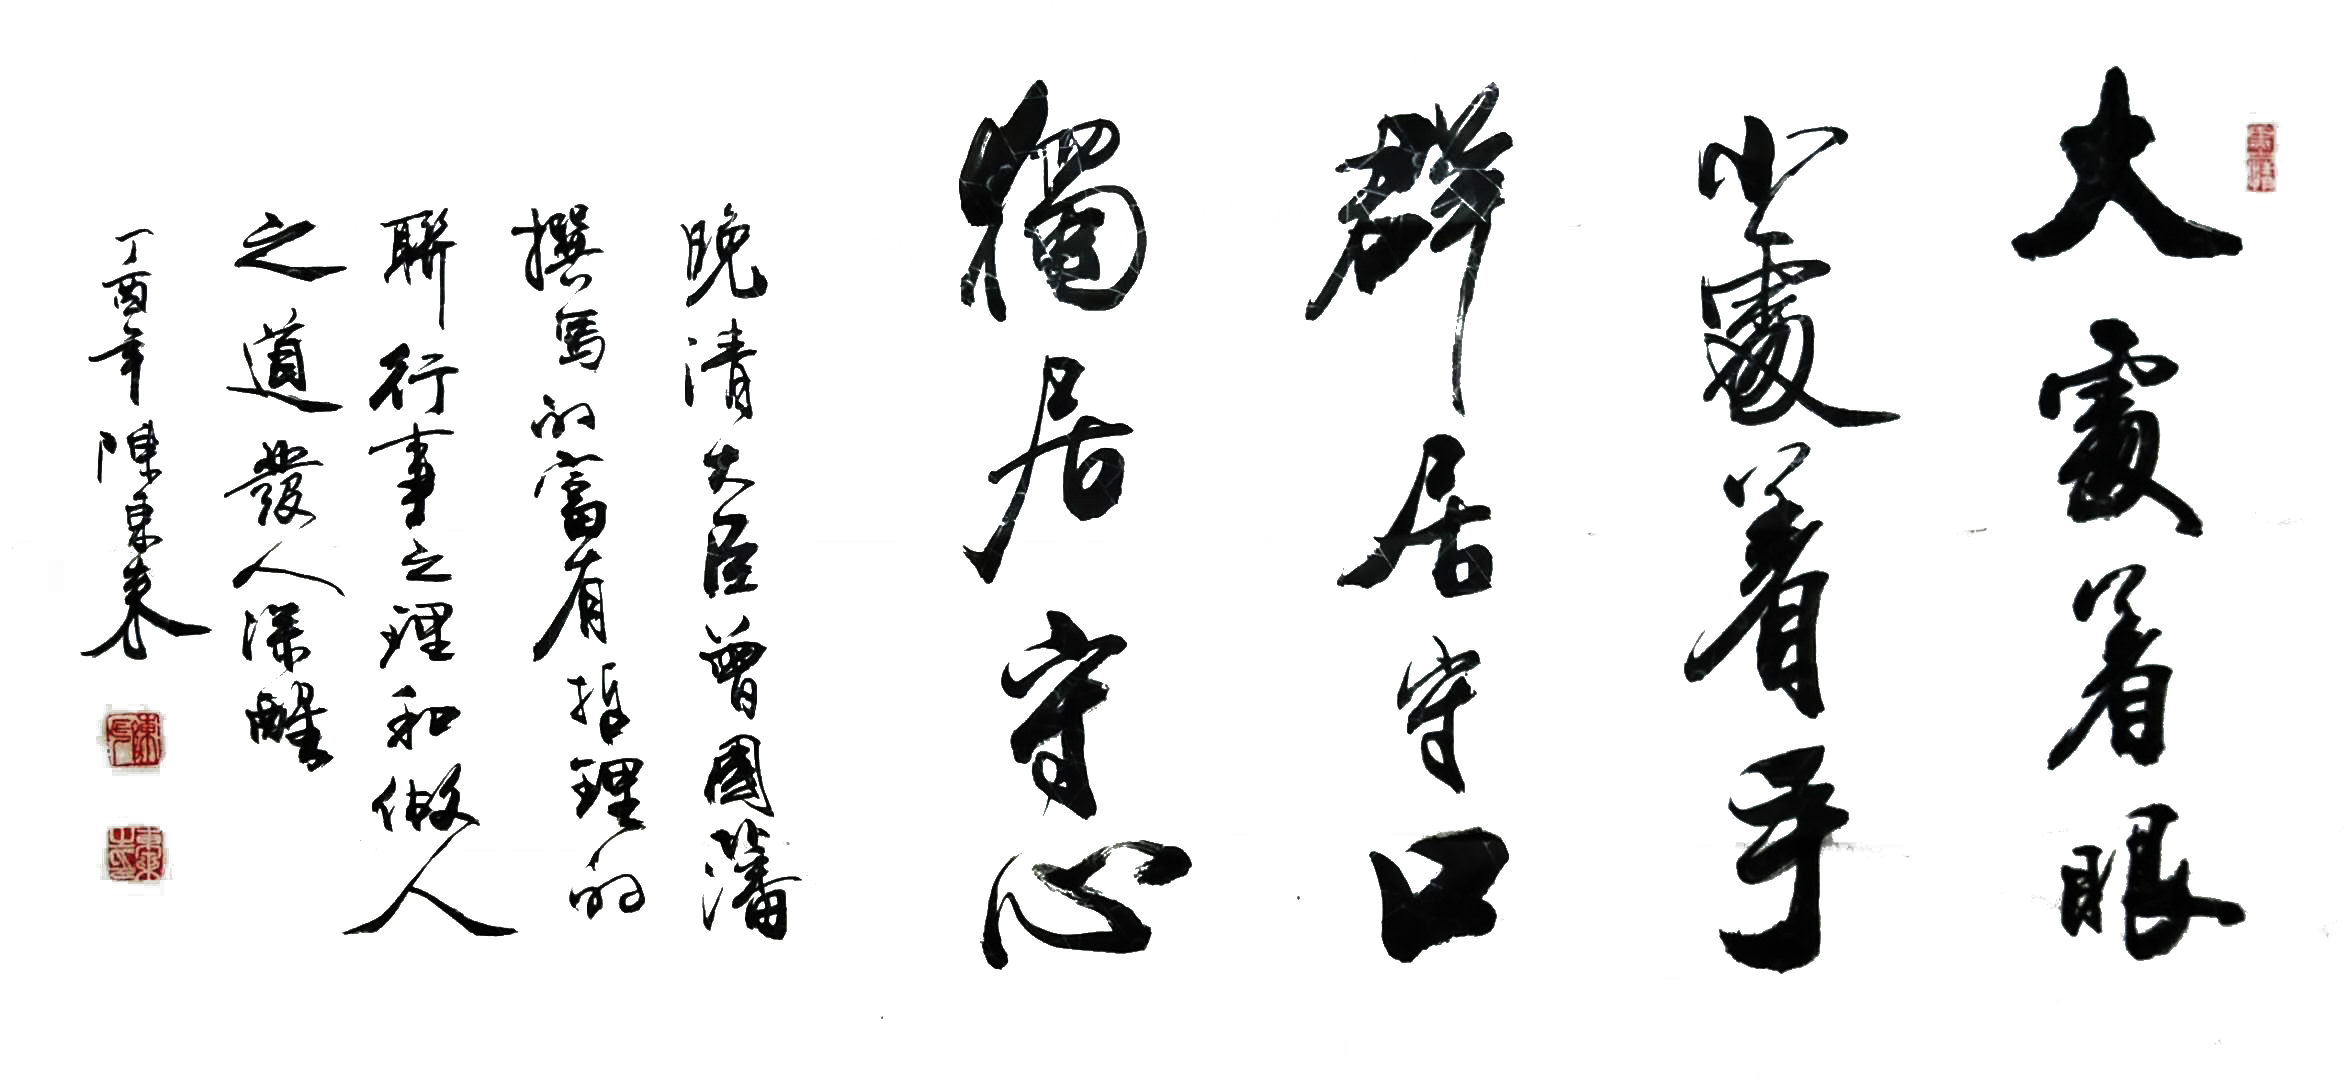 大處着眼
小處着手
群居守口
獨居守心
晚清大臣曾國藩
撰寫的富有哲理的
聯行事之理和做人
之道發人深醒
丁酉年陳東来